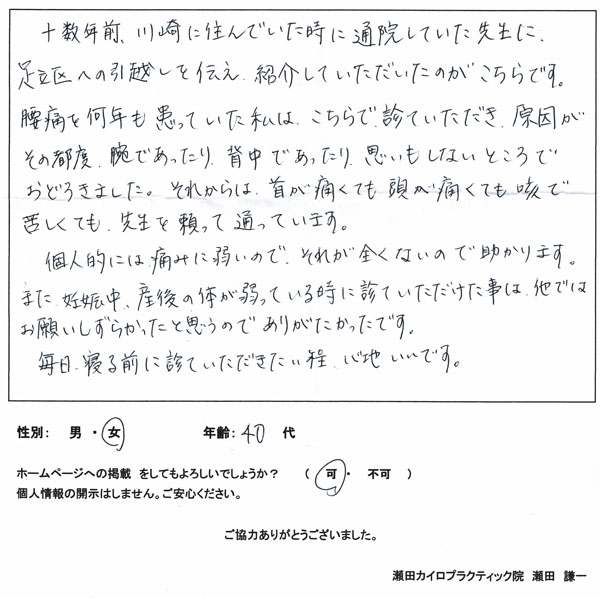 十数年前、川崎に住んでいた時に通院していた先生に、
足立区への引越しを伝え、紹介していただいたのがこちらです。
腰痛を何年も患っていた私は、こちらで診ていただき、原因が
その都度、腕であったり、背中であったり、思いもしないところで
おどろきました。それからは、首が痛くても頭が痛くても咳で
苦しくても、先生を頼って通っています。
個人的には痛みに弱いので、それが全くないので助かります。
また、妊娠中、産後の体が弱っている時に診ていただけた事は、他では
お願いしずらかったと思うのでありがたかったです。
毎日、寝る前に診ていただきたい程、心地いいです。
性別： 男 ・ 女 年齢： 40 代
ホームページへの掲載 をしてもよろしいでしょうか？ （ 可 ・ 不可 ）
個人情報の開示はしません。ご安心ください。
ご協力ありがとうございました。
瀬田カイロプラクティック院 瀬田 謙一